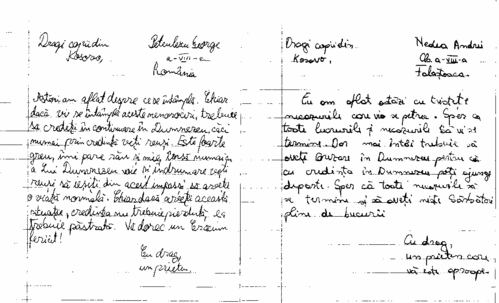 Dragi copii din
Kosovo,
Petculescu George
a-VIII-a
România
Astăzi am aflat despre ce se întâmplă. Chiar
dacă vi se întâmplă aceste nenorociri, trebuie
să credeți în continuare în Dumnezeu, căci
numai prin credință veți reuși. Este foarte
greu, îmi pare rău și mie, însă numai cu
a Lui Dumnezeu voie și îndrumare veți
reuși să ieșiți din acest impas și să aveți
o viață normală. Chiar dacă aveți această
situație, credința nu trebuie pierdută, ea
trebuie păstrată. Vă doresc un Crăciun
fericit!
Cu drag,
un prieten.
Dragi copii din
Kosovo,
Nedea Andrei
Cls. a-VIII-a
Fălăștoaca.
Eu am aflat astăzi cu tristețe
necazurile care vi s-a petrecut. Sper ca
toate lucrurile și necazurile să vi se
termine. Dar mai întâi trebuie să
aveți curaj în Dumnezeu pentru că
cu credința în Dumnezeu poți ajunge
departe. Sper că toate necazurile să
se termine și să aveți niște Sărbători
pline de bucurii
Cu drag,
un prieten care
vă este aproape.